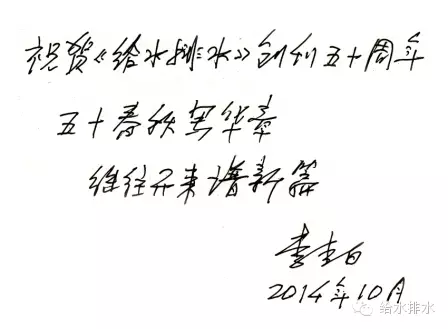 祝贺《给水排水》创刊五十周年
五十春秋写华章
继往开来谱新篇
李圭白
2014年10月
给水排水